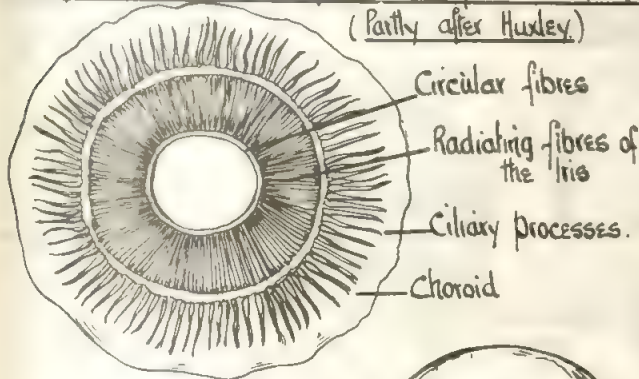 (Partly after Huxley.)
Circular fibres
Radiating fibres of
the Iris
Ciliary processes.
Choroid